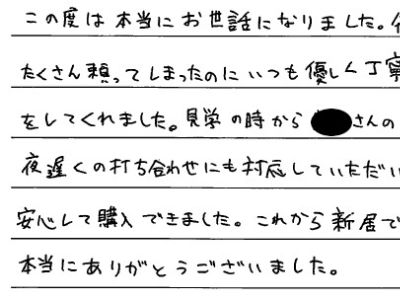 この度は本当にお世話になりました。
たくさん頼ってしまったのにいつも優しく丁寧
をしてくれました。見学の時から さんの
夜遅くの打ち合わせにも対応していただい
安心して購入できました。これから新居で
本当にありがとうございました。